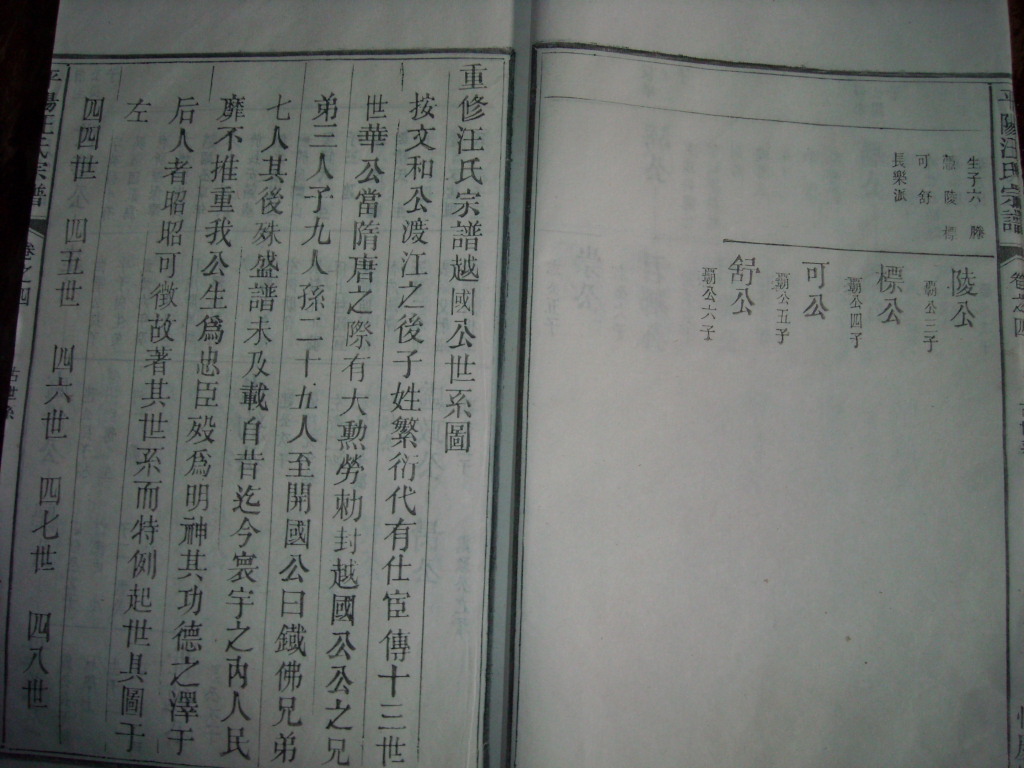 平陽汪氏宗譜
卷之四
生子六 滕
可 舒
長樂派
陵公
霸公三子
標公
霸公四子
可公
霸公五子
舒公
霸公六子
重修汪氏宗譜越國公世系圖
按文和公渡江之後子姓繁衍代有仕宦傳十三世
世華公當隋唐之際有大勲勞勅封越國公公之兄
弟三人子九人孫二十五人至開國公曰鐵佛兄弟
七人其後殊盛譜未及載自昔迄今寰宇之內人民
靡不推重我公生爲忠臣殁爲明神其功德之澤于
后人者昭昭可徵故著其世系而特例起世具圖于
左
四四世 四五世 四六世 四七世 四八世
平陽汪氏宗譜
卷之四